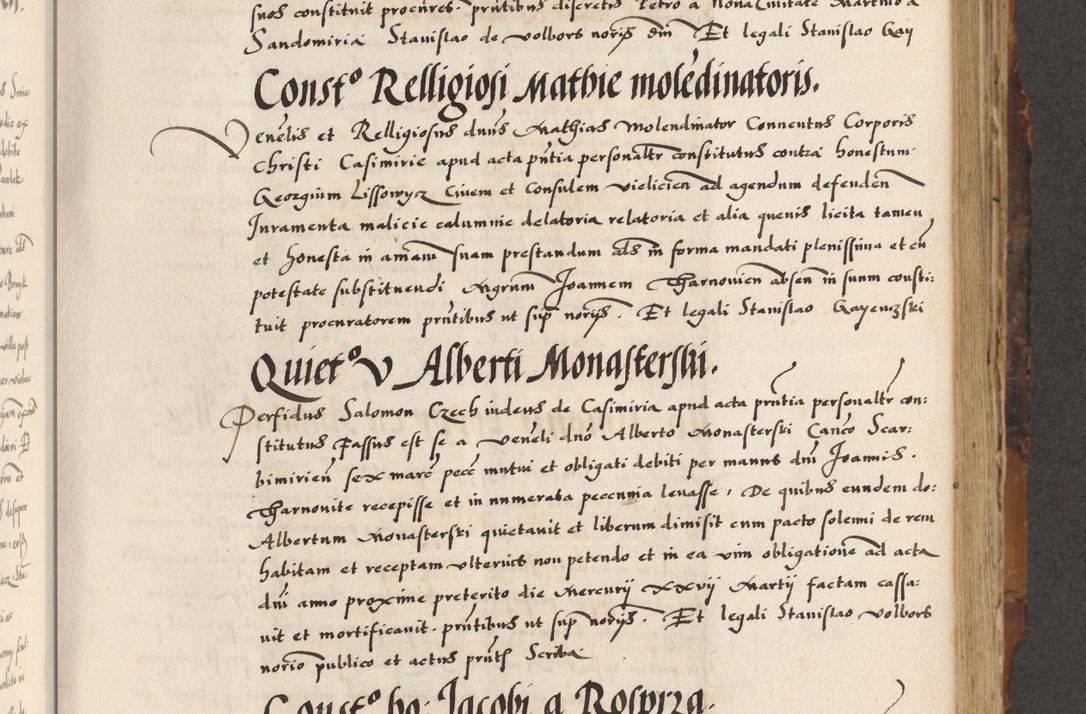 suos constituit procures. pntibus discretis Petro a Nona Civitate Martino a
Sandomiria Stanislao de volbors noriis dni Et legali Stanislao Gay
Constᵒ Relligiosi Mathie molēdinatoris.
Venelis et Relligiosus dnus Mathias Molendinator Connentus Corporis
Christi Casimirie apud acta pntia personalr constitutus contra honestum
Georgium Lissowycz Civem et Consulem vielicien ad agendum defenden
Iuramenta malicie calumnie delatoria relatoria et alia quevis licita tamen
et honesta in aniam suam prestandum als in forma mandati plenissima et cu
potestate substituendi Mgrum Ioannem Tharnovien absen in suum consti-
tuit procuratorem pntibus ut sup noriis. Et legali Stanislao Gayewski
Quietᵒ V Alberti Monasterski.
Perfidus Salomon Czech iudeus de Casimiria apud acta pntia personalr con:
stitutus Fassus est se a Veneli dno Alberto Monasterski Canco Scar:
bimirien sex marc pecc mutui et obligati debiti per manus dni Ioannis
Tharnovite recepisse et in numerata peccunia levasse, De quibus eundem do:
Albertum Monasterski quietavit et liberum dimisit cum pacto solemni de rem
habitam et receptam ulterius non petendo et in ea vim obligatione ad acta
dni anno proxime preterito die Mercurii XXvij Martij factam cassa:
vit et mortificavit. pntibus ut sup noriis. Et legali Stanislao volbors
norio publico et actus pnts Scriba
Constᵒ ho: Iacobi a Rosprza.